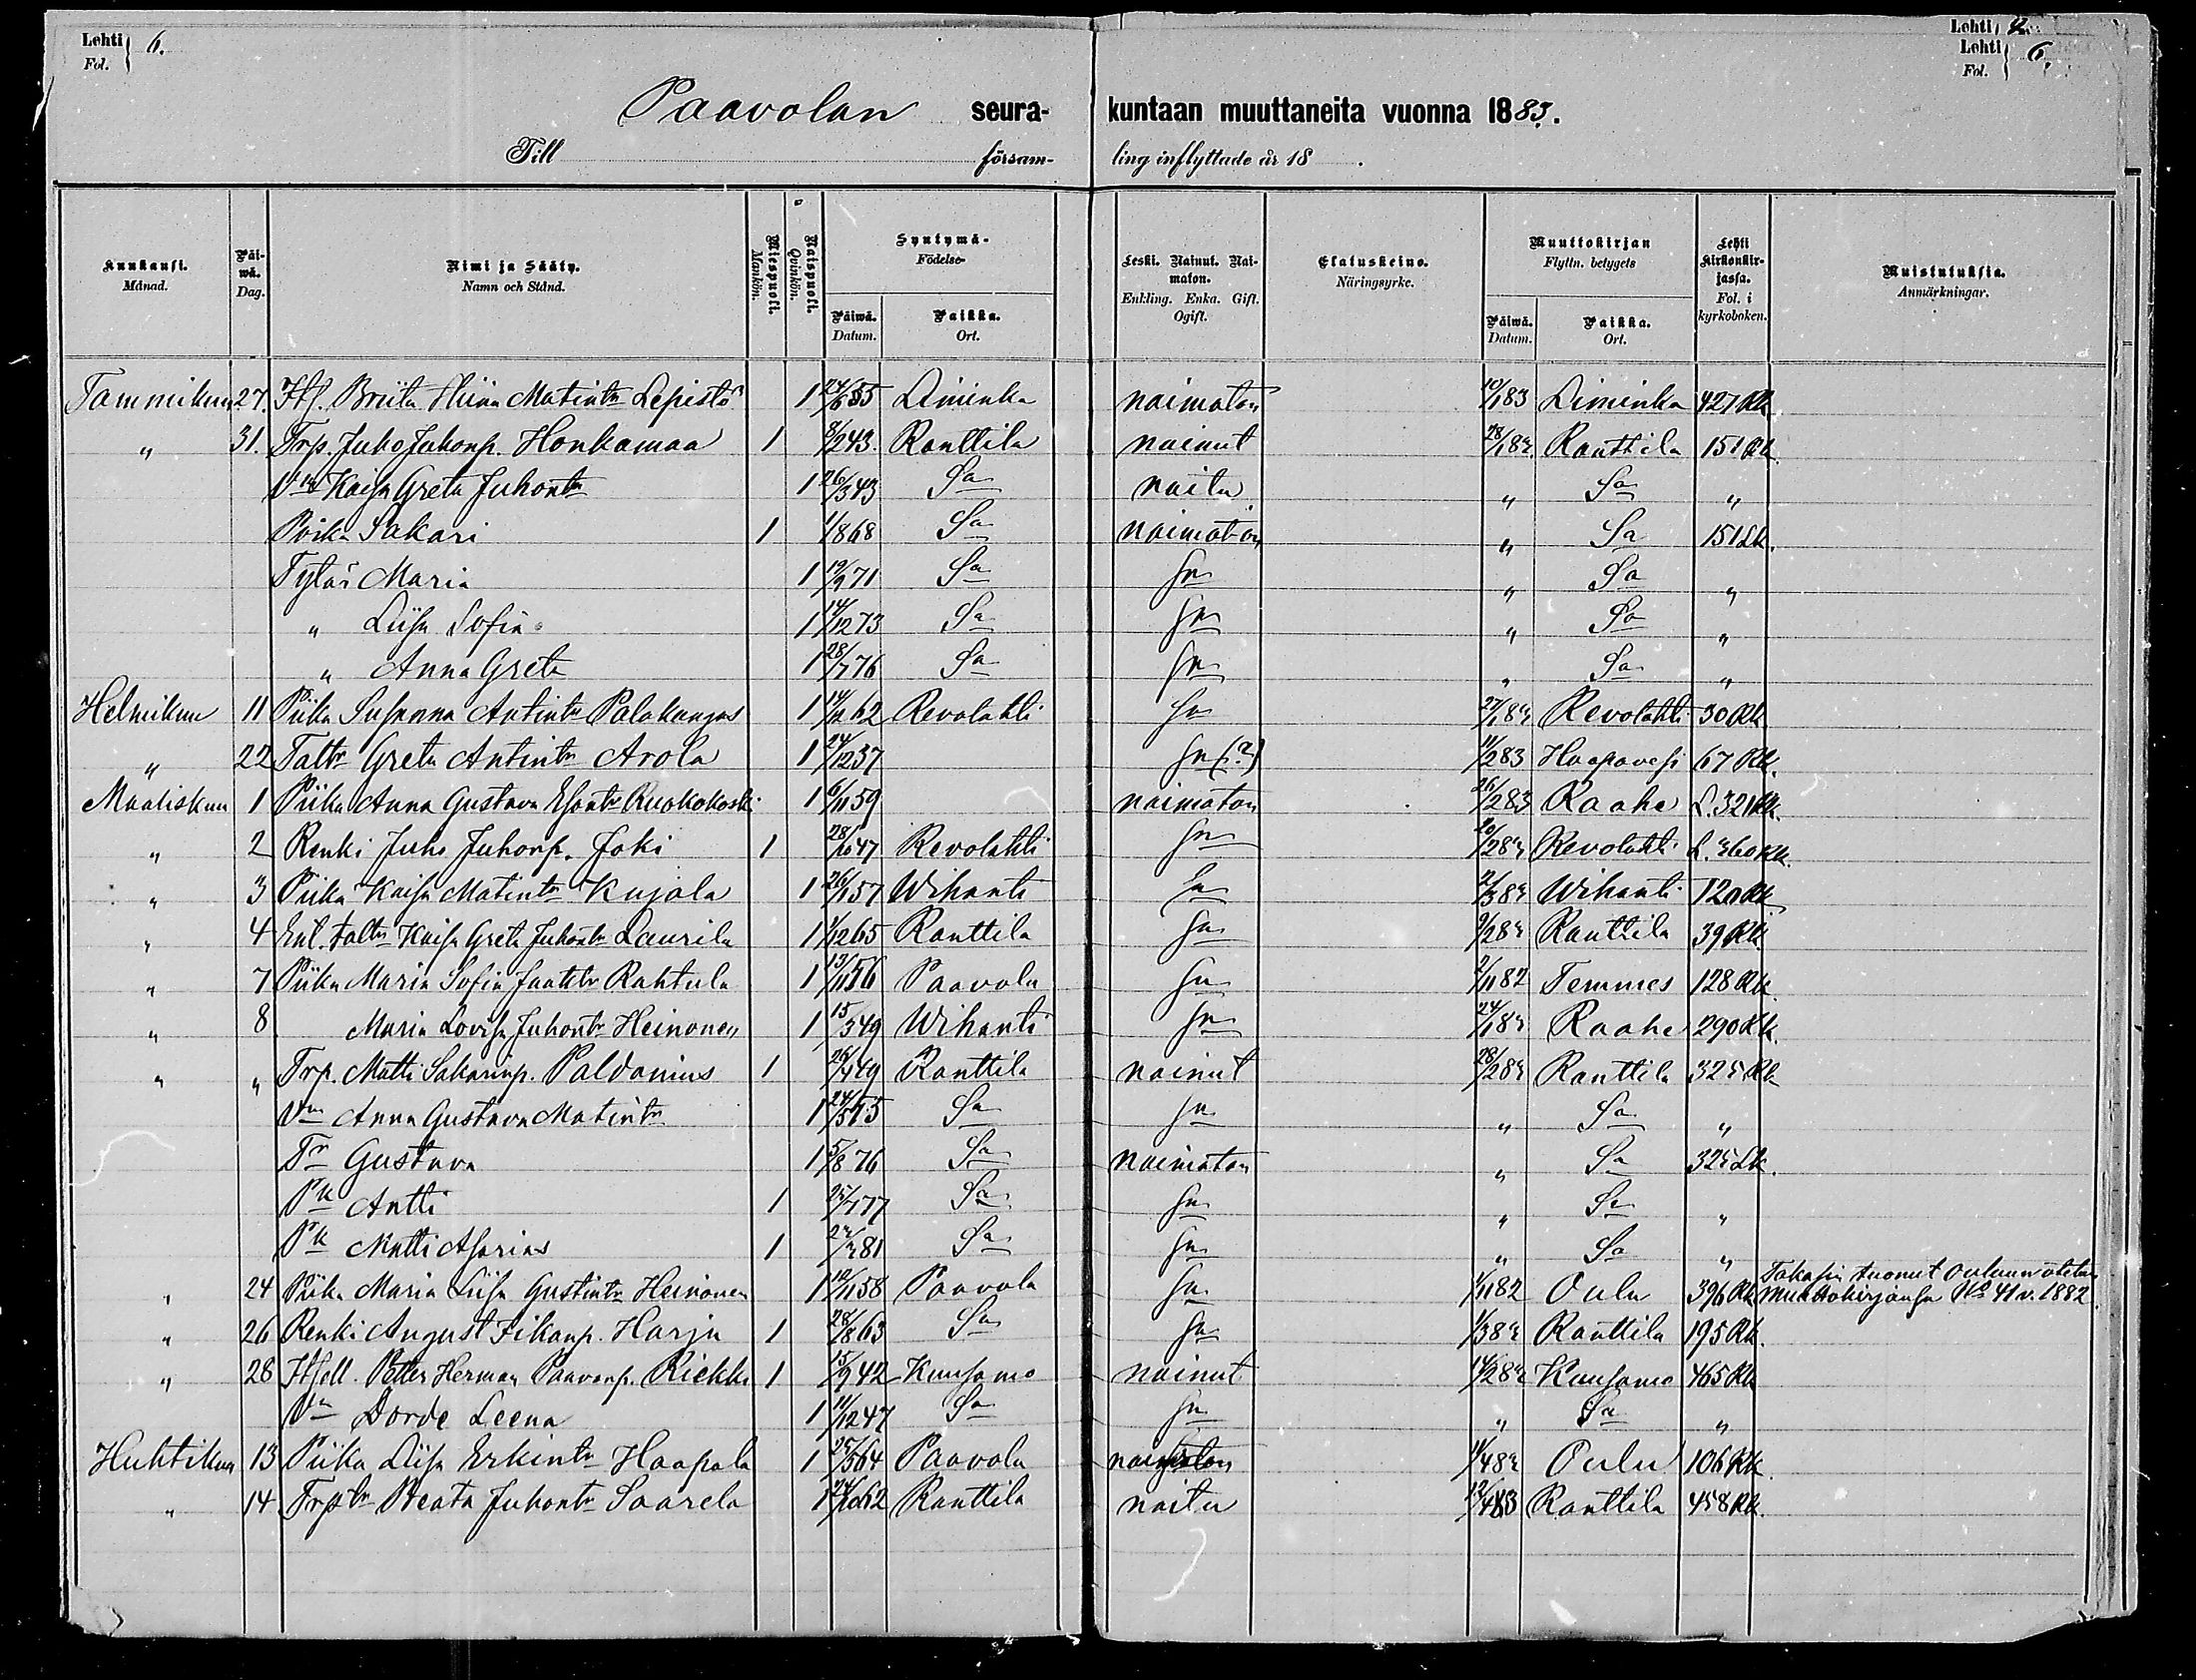 Lehti 6.
Fol.
Lehti
Lehti 6.
Fol.
Paavolan seura- kuntaan muuttaneita vuonna 1883.
Till försam- ling inflyttade år 18 .
Kuukausi. Månad.
Päiwä. Dag.
Nimi ja Sääty. Namn och Stånd.
Miespuoli. Mankön.
Naispuoli. Quinkön.
Syntymä- Födelse-
Päiwä. Datum.
Paikka. Ort.
Leski. Nainut. Naimaton. Enkling. Enka. Gift. Ogift.
Elatuskeino. Näringsyrke.
Muuttokirjan Flyttn. betygets
Päiwä. Datum.
Paikka. Ort.
Lehti Kirkonkirjassa. Fol. i kyrkoboken.
Muistutuksia. Anmärkningar.
Tammikuu 27. Its. Briita Matintr Lepistö 1 24/6 55 Liminka naimaton 10/1 83 Liminka 427 Rk
" 31. Trp. Juho Juhonp. Honkamaa 1 8/2 43. Ranttila nainut 28/1 83 Ranttila 151 Rk.
Vmo Kaisa Greta Juhontr 1 26/3 43 Sa naitu " Sa "
Poika Sakari 1 1/8 68 Sa naimaton " Sa 151 Lk.
Tytär Maria 1 19/9 71 Sa Sa " Sa "
" Liisa Sofia 1 14/12 73 Sa Sa " Sa "
" Anna Greta 1 28/7 76 Sa Sa " Sa "
Helmikuu 11 Piika Susanna Antintr Palokangas 1 62 Revolahti Sa 27/1 83 Revolahti 30 Rk
" 22 Taltr Greta Antintr Arola 1 24/12 37 Sa (?) 11/2 83 Haapavesi 67 Rk.
Maaliskuu 1 Piika Anna Gustava Esantr Ruokokoski 1 6/11 59 naimaton 26/2 83 Raahe L. 321 Rk.
" 2 Renki Juho Juhonp. Joki 1 28/10 47 Revolahti Sa 20/2 83 Revolahti L. 360 Rk.
" 3 Piika Kaisa Matintr Kujala 1 26/1 57 Wihanti Sa 2/3 83 Wihanti 120 Rk
" 4 Ent. taltr Kaisa Greta Juhontr Laurila 1 1/12 65 Ranttila Sa 9/2 83 Ranttila 39 Rk
" 7 Piika Maria Sofia Jaaktr Rahtula 1 13/11 56 Paavola Sa 2/11 82 Temmes 128 Rk.
" 8 Maria Lovisa Juhontr Heinonen 1 15/5 49 Wihanti Sa 24/1 83 Raahe 290 Rk.
" " Trp. Matti Sakarinp. Paldanius 1 26/4 49 Ranttila nainut 28/2 83 Ranttila 325 Rk
Vmo Anna Gustava Matintr 1 24/5 Sa Sa " Sa "
Tr Gustava 1 5/8 76 Sa naimaton " Sa 325 Lk.
Pk Antti 1 25/7 77 Sa Sa " Sa "
Pk Matti Asarias 1 81 Sa Sa " Sa "
" 24 Piika Maria Liisa Gustintr Heinonen 1 10/11 58 Paavola Sa 1/11 82 Oulu 396 Rk Takasin tuonut Ouluun otetun
Muuttokirjansa No 41 v. 1882.
" 26 Renki August Fikanp. Harju 1 28/8 63 Sa Sa 1/3 83 Ranttila 195 Rk.
" 28 Itsell. Petter Herman Paavonp. Riekki 1 15/9 42 Kuusamo nainut 14/2 83 Kuusamo 465 Rk
Vm Dorde Leena 1 11/12 47 Sa Sa " Sa "
Huhtikuu 13 Piika Liisa Erkintr Haapala 1 25/5 64 Paavola naimaton 11/4 83 Oulu 106 Rk.
" 14 Trptr Beata Juhontr Saarela 1 24/10 62 Ranttila naitu 12/4 83 Ranttila 458 Rk.